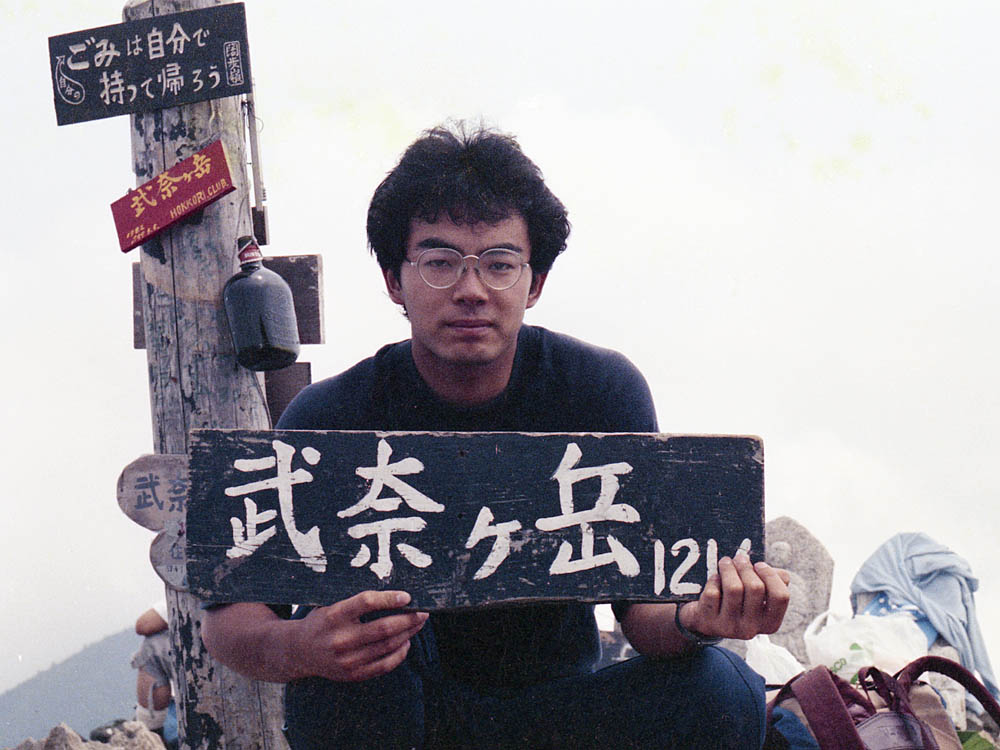 ごみは自分で
持って帰ろう
武奈ヶ岳
HOKKORI.CLUB
武奈
武奈ヶ岳
121